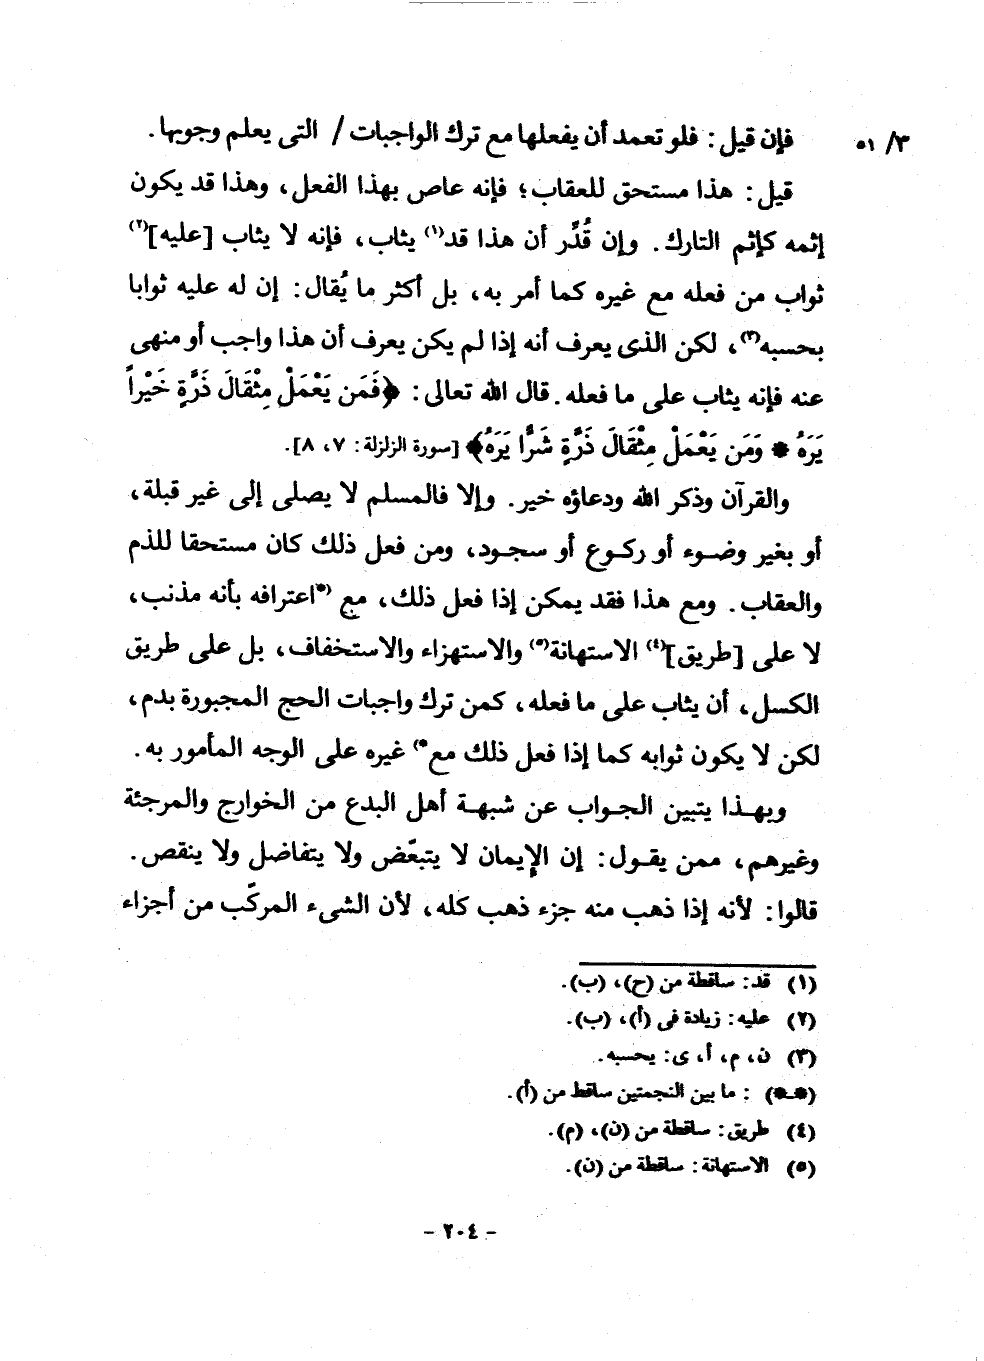 فإن قيل: فلو تعمد أن يفعلها مع ترك الواجبات / التى يعلم وجوبها. ٣/ ٥١
قيل: هذا مستحق للعقاب؛ فإنه عاص بهذا الفعل، وهذا قد يكون
إثمه كإثم التارك. وإن قُدِّر أن هذا قد(١) يثاب، فإنه لا يثاب [عليه](٢)
ثواب من فعله مع غيره كما أمر به، بل أكثر ما يُقال: إن له عليه ثوابا
بحسبه(٣)، لكن الذى يعرف أنه إذا لم يكن يعرف أن هذا واجب أو منهى
عنه فإنه يثاب على ما فعله. قال الله تعالى: ﴿فَمَن يَعْمَلْ مِثْقَالَ ذَرَّةٍ خَيْراً
يَرَهُ * وَمَن يَعْمَلْ مِثْقَالَ ذَرَّةٍ شَرًّا يَرَهُ﴾ [سورة الزلزلة: ٧، ٨].
والقرآن وذكر الله ودعاؤه خير. وإلا فالمسلم لا يصلى إلى غير قبلة،
أو بغير وضوء أو ركوع أو سجود، ومن فعل ذلك كان مستحقا للذم
والعقاب. ومع هذا فقد يمكن إذا فعل ذلك، مع (*اعترافه بأنه مذنب،
لا على [طريق](٤) الاستهانة(٥) والاستهزاء والاستخفاف، بل على طريق
الكسل، أن يثاب على ما فعله، كمن ترك واجبات الحج المجبورة بدم،
لكن لا يكون ثوابه كما إذا فعل ذلك مع*) غيره على الوجه المأمور به.
وبهذا يتبين الجواب عن شبهة أهل البدع من الخوارج والمرجئة
وغيرهم، ممن يقول: إن الإيمان لا يتبعّض ولا يتفاضل ولا ينقص.
قالوا: لأنه إذا ذهب منه جزء ذهب كله، لأن الشىء المركّب من أجزاء
(١) قد: ساقطة من (ح)، (ب).
(٢) عليه: زيادة فى (أ)، (ب).
(٣) ن، م، أ، ى: يحسبه.
(*-*) : ما بين النجمتين ساقط من (أ).
(٤) طريق: ساقطة من (ن)، (م).
(٥) الاستهانة: ساقطة من (ن).
- ٢٠٤ -